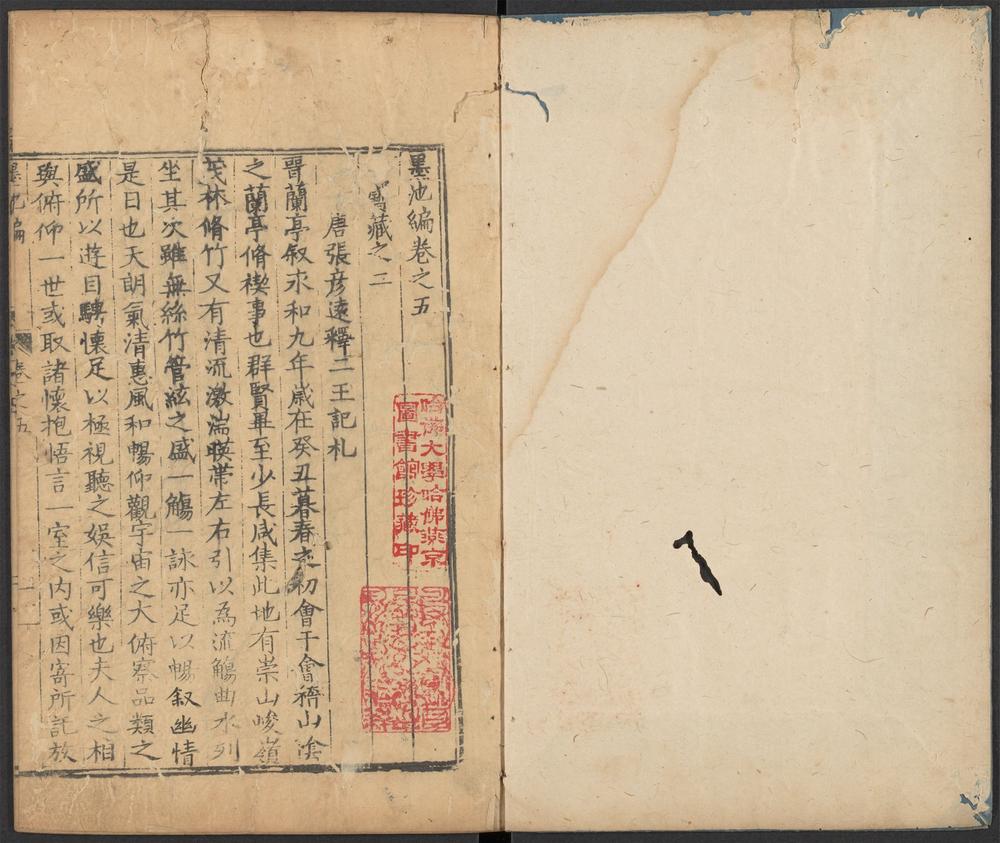 墨池編卷之五
寳藏之二
唐張彦遠釋二王記札
晋蘭亭叙永和九年歲在癸丑暮春之初會于會稽山陰
之蘭亭脩禊事也群賢畢至少長咸集此地有崇山峻嶺
茂林脩竹又有清流激湍暎帶左右引以為流觴曲水列
坐其次雖無絲竹管絃之盛一觴一詠亦足以暢叙幽情
是日也天朗氣清惠風和暢仰觀宇宙之大俯察品類之
盛所以遊目騁懷足以極視聽之娛信可樂也夫人之相
與俯仰一世或取諸懷抱悟言一室之内或因寄所託放
墨池編
卷之五
一
哈佛大學哈佛燕京
圖書館珍藏印